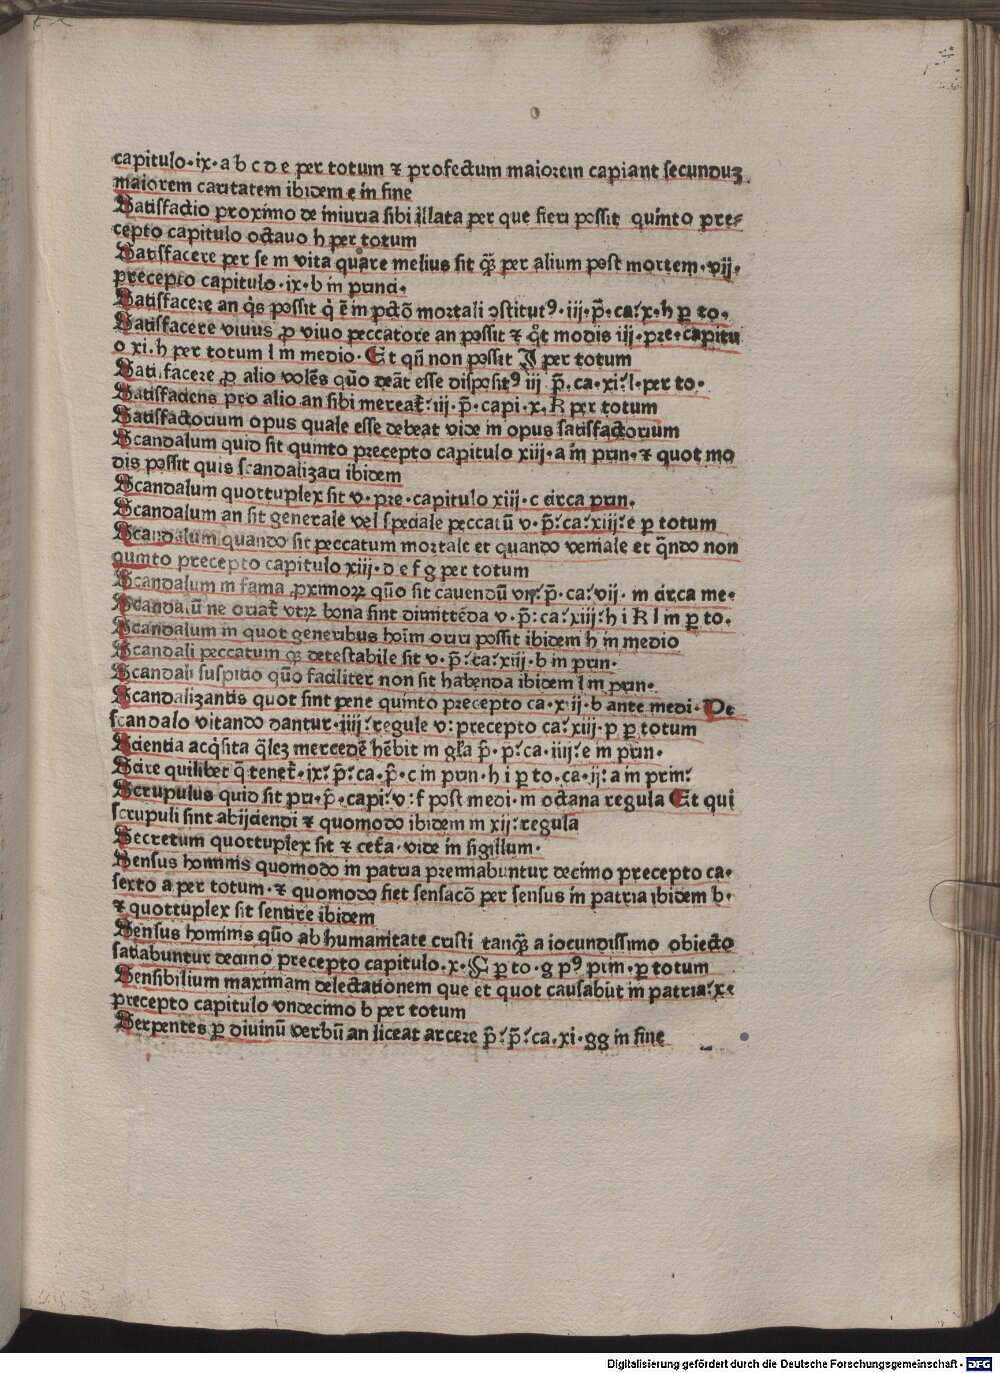 capitulo·ix·a b c d e per totum ⁊ profectum maiorem capiant secunduꝫ
maiorem caritatem ibidem e in fine
Satisfactio proximo de iniuria sibi illata per que fieri possit quinto pre⸗
cepto capitulo octauo h per totum
Satisfacere per se in vita quare melius sit qᷓꝫ per alium post mortem·vij·
precepto capitulo·ix·b in princi·
Satisfacere an q̇s possit q̇ ē in pctō mortali ↄstitutꝰ·iij·p̄·ca.x·h ꝑ to.
Satisfacere viuus ꝓ viuo peccatore an possit ⁊ qͦt modis iij·pre·capitu
o xi·h per totum l m medio·Et qn̄ non possit J per totum
Satisfacere ꝓ alio volēs quō deāt esse dispositꝰ iij p̄·ca·xi·l·per to·
Satisfaciens pro alio an sibi mereat᷑·iij·p̄·capi·x·k per totum
Satisfactorium opus quale esse debeat vide in opus satisfactorium
Scandalum quid sit quinto precepto capitulo xiij·a in prin·⁊ quot mo
dis possit quis scandalizari ibidem
Scandalum quottuplex sit v·pre·capitulo xiij·c circa prin.
Scandalum an sit generale vel speciale peccatū v·p̄·ca·xiij·e ꝑ totum
Scandalum quando sit peccatum mortale et quando veniale et qn̄do non
quinto precepto capitulo xiij·d e f g per totum
Scandalum in fama ꝓximoꝝ quō sit cauendū viij·p̄·ca·vij·m circa me·
Scandalū ne oriat᷑ vtrꝝ bona sint dimittēda v·p̄·ca·xiij·h i k l m ꝑ to.
Scandalum in quot generibus hoīm oriri possit ibidem h in medio
Scandali peccatum qᷓꝫ detestabile sit v·p̄·ca·xiij·b in prin·
Scandali suspitio quō faciliter non sit habenda ibidem l m prin·
Scandalizantis quot sint pene quinto precepto ca·xiij·b ante medi·De
scandalo vitando dantur·iiij·regule v·precepto ca·xiij·p ꝑ totum
Scientia acq̇sita q̄leꝫ mercedē hēbit in gl̄a p̄·p̄·ca·iiij·e in prin·
Scire quilibet q̄ tenet᷑·ix·p̄·ca·p̄·c in prin·h i ꝑ to·ca·ij·a in prin·
Scrupulus quid sit pri·p̄·capi·v·f post medi·in octaua regula Et qui
scrupuli sint abijciendi ⁊ quomodo ibidem in xij·regula
Secretum quottuplex sit ⁊ ceta·vide in sigillum·
Sensus hominis quomodo in patria premiabuntur decimo precepto ca·
sexto a per totum·⁊ quomodo fiet sensacō per sensus in patria ibidem b·
⁊ quottuplex sit sentire ibidem
Sensus hominis quō ab humanitate cristi tanqᷓꝫ a iocundissimo obiecto
satiabuntur decimo precepto capitulo·x·f ꝑ to·g pꝰ prin·ꝑ totum
Sensibilium maximam delectationem que et quot causabūt in patria·x·
precepto capitulo vndecimo b per totum
Serpentes ꝑ diuinū verbū an liceat arcere p̄·p̄·ca·xi·gg in fine
Digitalisierung gefördert durch die Deutsche Forschungsgemeinschaft - DFG